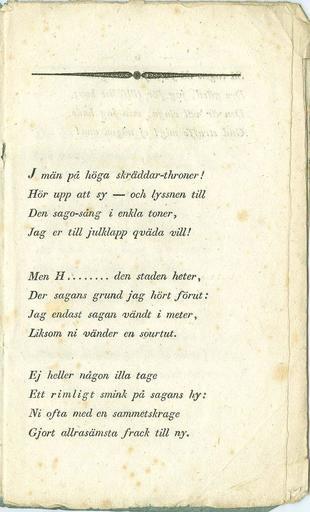 J män på höga skräddar-throner!
Hör upp att sy — och lyssnen till
Den sago-sång i enkla toner,
Jag er till julklapp qväda vill!
Men H........ den staden heter,
Der sagans grund jag hört förut:
Jag endast sagan vändt i meter,
Liksom ni vänder en sourtut.
Ej heller någon illa tage
Ett rimligt smink på sagans hy:
Ni ofta med en sammetskrage
Gjort allrasämsta frack till ny.